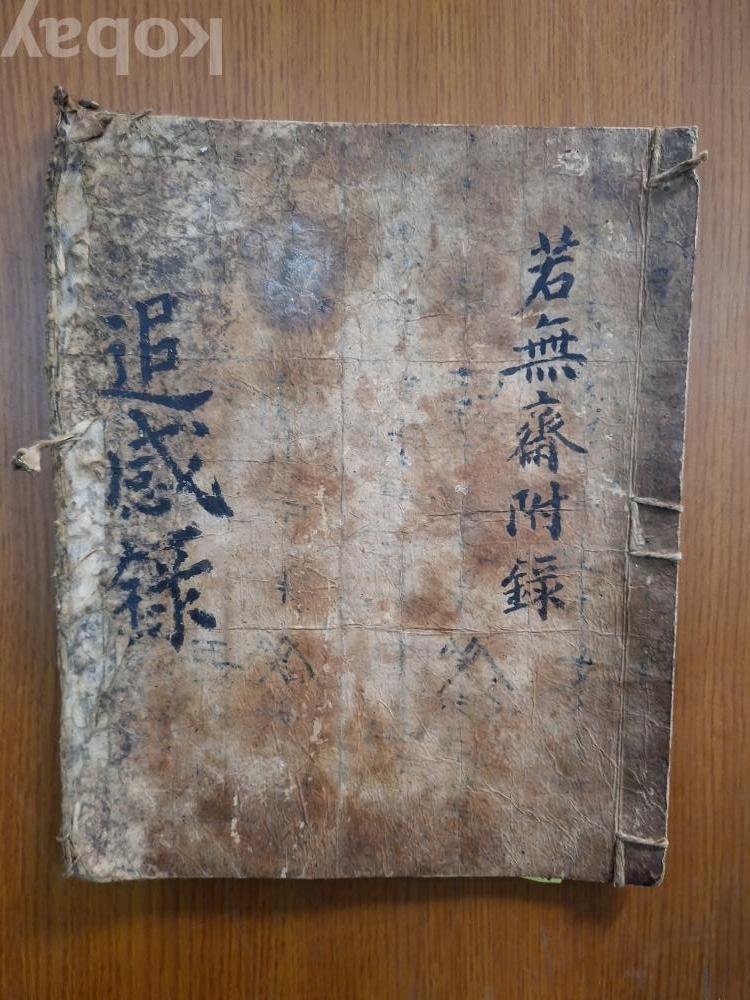 若無齋附錄
追感錄
kobay